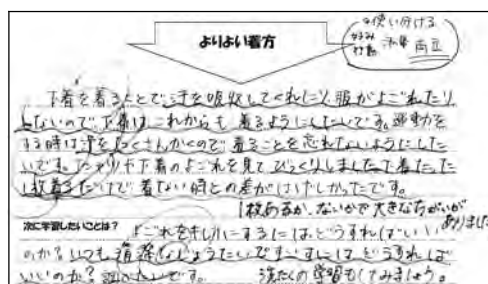 よりよい着方
使い分ける
好み
両立
下着を着ることで汗を吸収してくれたり、服がよごれたり
しないので、下着はこれからも着るようにしたいです。運動を
する時は汗をたくさんかくので着ることを忘れないようにした
いです。や下着のよごれを見てびっくりしました。下着たった
1枚着るだけで着ない時との差がはげしかったです。
1枚あるか、ないかで大きなちがいが
ありました
次に学習したいことは?
よごれをきれいにするには、どうすればいい
のか?いつも清潔なじょうたいですごすには、どうすれば
いいのか?調べたいです。
洗たくの学習もしてみましょう。